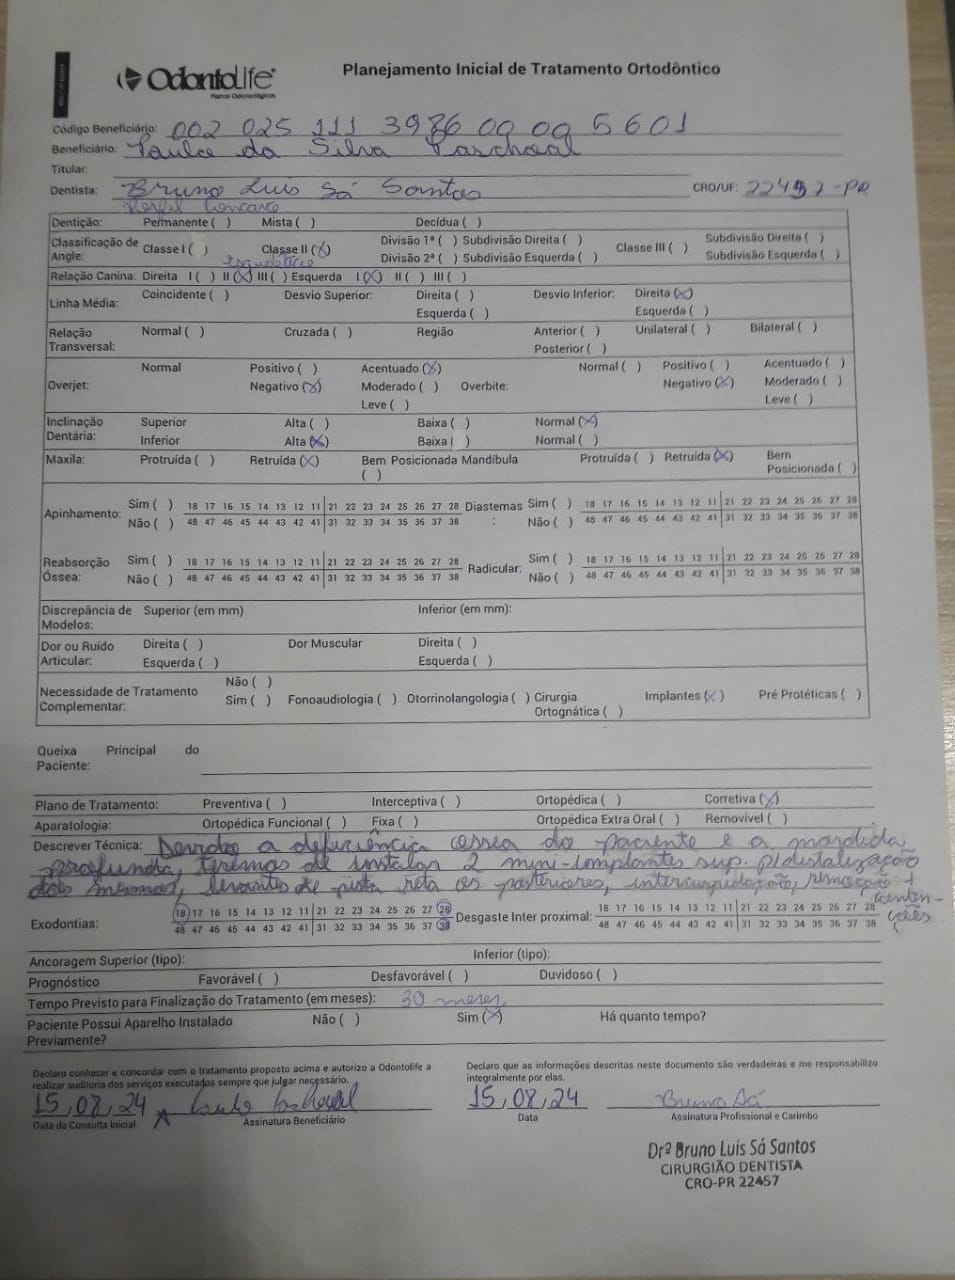 OdontoLife
Planos Odontológicos
Planejamento Inicial de Tratamento Ortodôntico
Código Beneficiário: 002 025 111 3986 00 00 5601
Beneficiário: Paulo da Silva Paschoal
Titular:
Dentista: Bruno Luis Sá Santos CRO/UF: 22457-PR
Perfil Concavo
Dentição: Permanente ( ) Mista ( ) Decídua ( )
Classificação de Angle: Classe I ( ) Classe II (X) Divisão 1ª ( ) Subdivisão Direita ( ) Classe III ( ) Subdivisão Direita ( )
Esquelético Divisão 2ª ( ) Subdivisão Esquerda ( ) Subdivisão Esquerda ( )
Relação Canina: Direita I ( ) II (X) III ( ) Esquerda I (X) II ( ) III ( )
Linha Média: Coincidente ( ) Desvio Superior: Direita ( ) Desvio Inferior: Direita (X)
Esquerda ( ) Esquerda ( )
Relação Transversal: Normal ( ) Cruzada ( ) Região Anterior ( ) Unilateral ( ) Bilateral ( )
Posterior ( )
Normal Positivo ( ) Acentuado (X) Normal ( ) Positivo ( ) Acentuado ( )
Overjet: Negativo (X) Moderado ( ) Overbite: Negativo (X) Moderado ( )
Leve ( ) Leve ( )
Inclinação Dentária: Superior Alta ( ) Baixa ( ) Normal (X)
Inferior Alta (X) Baixa ( ) Normal ( )
Maxila: Protruída ( ) Retruída (X) Bem Posicionada ( ) Mandíbula Protruída ( ) Retruída (X) Bem Posicionada ( )
Apinhamento: Sim ( ) 18 17 16 15 14 13 12 11 21 22 23 24 25 26 27 28 Diastemas: Sim ( ) 18 17 16 15 14 13 12 11 21 22 23 24 25 26 27 28
Não ( ) 48 47 46 45 44 43 42 41 31 32 33 34 35 36 37 38 Não ( ) 48 47 46 45 44 43 42 41 31 32 33 34 35 36 37 38
Reabsorção Óssea: Sim ( ) 18 17 16 15 14 13 12 11 21 22 23 24 25 26 27 28 Radicular: Sim ( ) 18 17 16 15 14 13 12 11 21 22 23 24 25 26 27 28
Não ( ) 48 47 46 45 44 43 42 41 31 32 33 34 35 36 37 38 Não ( ) 48 47 46 45 44 43 42 41 31 32 33 34 35 36 37 38
Discrepância de Modelos: Superior (em mm) Inferior (em mm):
Dor ou Ruído Articular: Direita ( ) Dor Muscular Direita ( )
Esquerda ( ) Esquerda ( )
Necessidade de Tratamento Complementar: Não ( )
Sim ( ) Fonoaudiologia ( ) Otorrinolangologia ( ) Cirurgia Ortognática ( ) Implantes (X) Pré Protéticas ( )
Queixa Principal do Paciente:
Plano de Tratamento: Preventiva ( ) Interceptiva ( ) Ortopédica ( ) Corretiva (X)
Aparatologia: Ortopédica Funcional ( ) Fixa ( ) Ortopédica Extra Oral ( ) Removível ( )
Descrever Técnica: Devido a deficiência ossea do paciente e a mordida
profunda, teremos de instalar 2 mini-implantes sup. p/ distalização
dos mesmos, levantes de pista reta os posteriores, intercuspidação, remoção +
contenções
Exodontias: 18 17 16 15 14 13 12 11 21 22 23 24 25 26 27 28 Desgaste Inter proximal: 18 17 16 15 14 13 12 11 21 22 23 24 25 26 27 28
48 47 46 45 44 43 42 41 31 32 33 34 35 36 37 38 48 47 46 45 44 43 42 41 31 32 33 34 35 36 37 38
Ancoragem Superior (tipo): Inferior (tipo):
Prognóstico Favorável ( ) Desfavorável ( ) Duvidoso ( )
Tempo Previsto para Finalização do Tratamento (em meses): 30 meses
Paciente Possui Aparelho Instalado Previamente? Não ( ) Sim (X) Há quanto tempo?
Declaro conhecer e concordar com o tratamento proposto acima e autorizo a Odontolife a
realizar auditoria dos serviços executados sempre que julgar necessário.
Declaro que as informações descritas neste documento são verdadeiras e me responsabilizo
integralmente por elas.
15,08,24 X Paulo Paschoal 15,08,24 Bruno Sá
Data da Consulta Inicial Assinatura Beneficiário Data Assinatura Profissional e Carimbo
Drº Bruno Luis Sá Santos
CIRURGIÃO DENTISTA
CRO-PR 22457